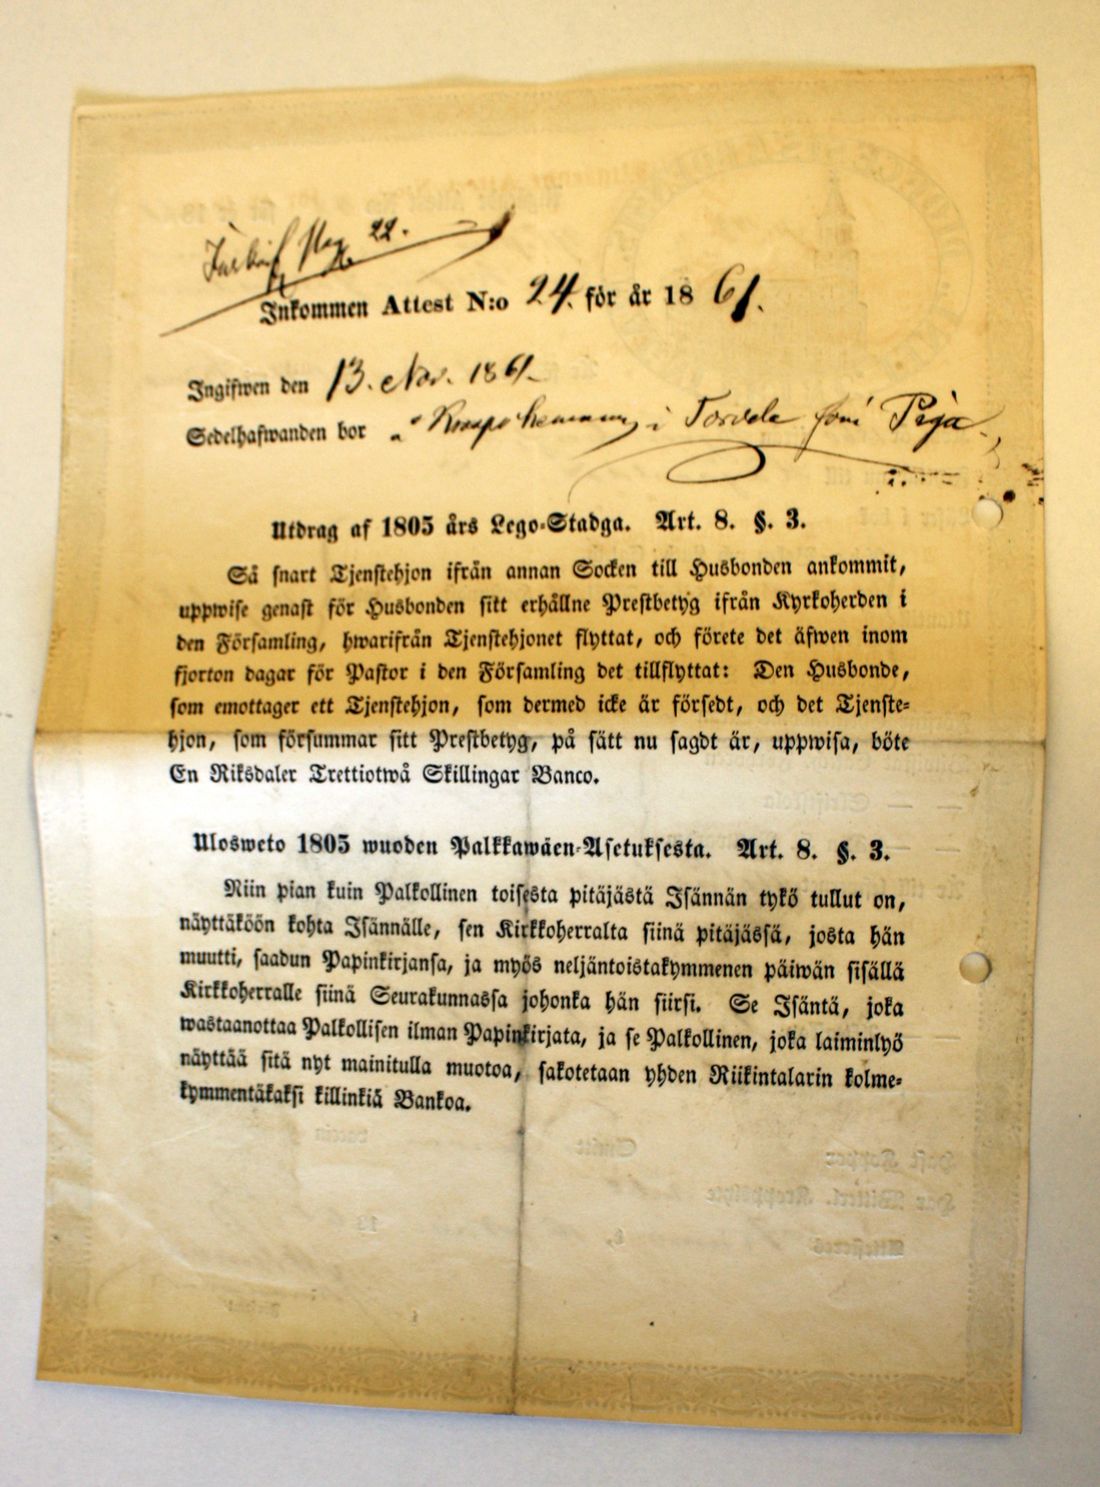 22.
Inkommen Attest N:o 24. för år 1861.
Ingifwen den 13. Nov. 1861.
Sedelhafwanden bor i Torvela som Piga
Utdrag af 1805 års Lego-Stadga. Art. 8. §. 3.
Så snart Tjenstehjon ifrån annan Socken till Husbonden ankommit,
uppwise genast för Husbonden sitt erhållne Prestbetyg ifrån Kyrkoherden i
den Församling, hwarifrån Tjenstehjonet flyttat, och förete det äfwen inom
fjorton dagar för Pastor i den Församling det tillflyttat: Den Husbonde,
som emottager ett Tjenstehjon, som dermed icke är försedt, och det Tjenste-
hjon, som försummar sitt Prestbetyg, på sätt nu sagdt är, uppwisa, böte
En Riksdaler Trettiotwå Skillingar Banco.
Ulosweto 1805 wuoden Palkkawäen-Asetuksesta. Art. 8. §. 3.
Niin pian kuin Palkollinen toisesta pitäjästä Isännän tykö tullut on,
näyttäköön kohta Isännälle, sen Kirkkoherralta siinä pitäjässä, josta hän
muutti, saadun Papinkirjansa, ja myös neljäntoistakymmenen päiwän sisällä
Kirkkoherralle siinä Seurakunnassa johonka hän siirsi. Se Isäntä, joka
wastaanottaa Palkollisen ilman Papinkirjata, ja se Palkollinen, joka laiminlyö
näyttää sitä nyt mainitulla muotoa, sakotetaan yhden Riikintalarin kolme-
kymmentäkaksi killinkiä Bankoa.